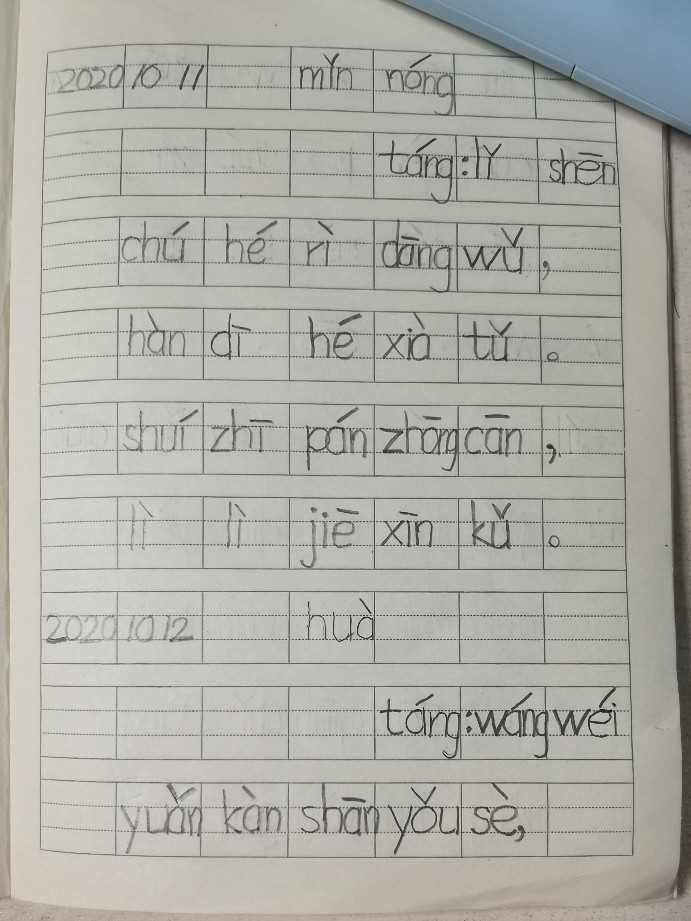 2020 10 11 mǐn nóng
táng:lǐ shēn
chú hé rì dāng wǔ,
hàn dī hé xià tǔ。
shuí zhī pán zhōng cān,
lì lì jiē xīn kǔ。
2020 10 12 huà
táng:wáng wéi
yuǎn kàn shān yǒu sè,